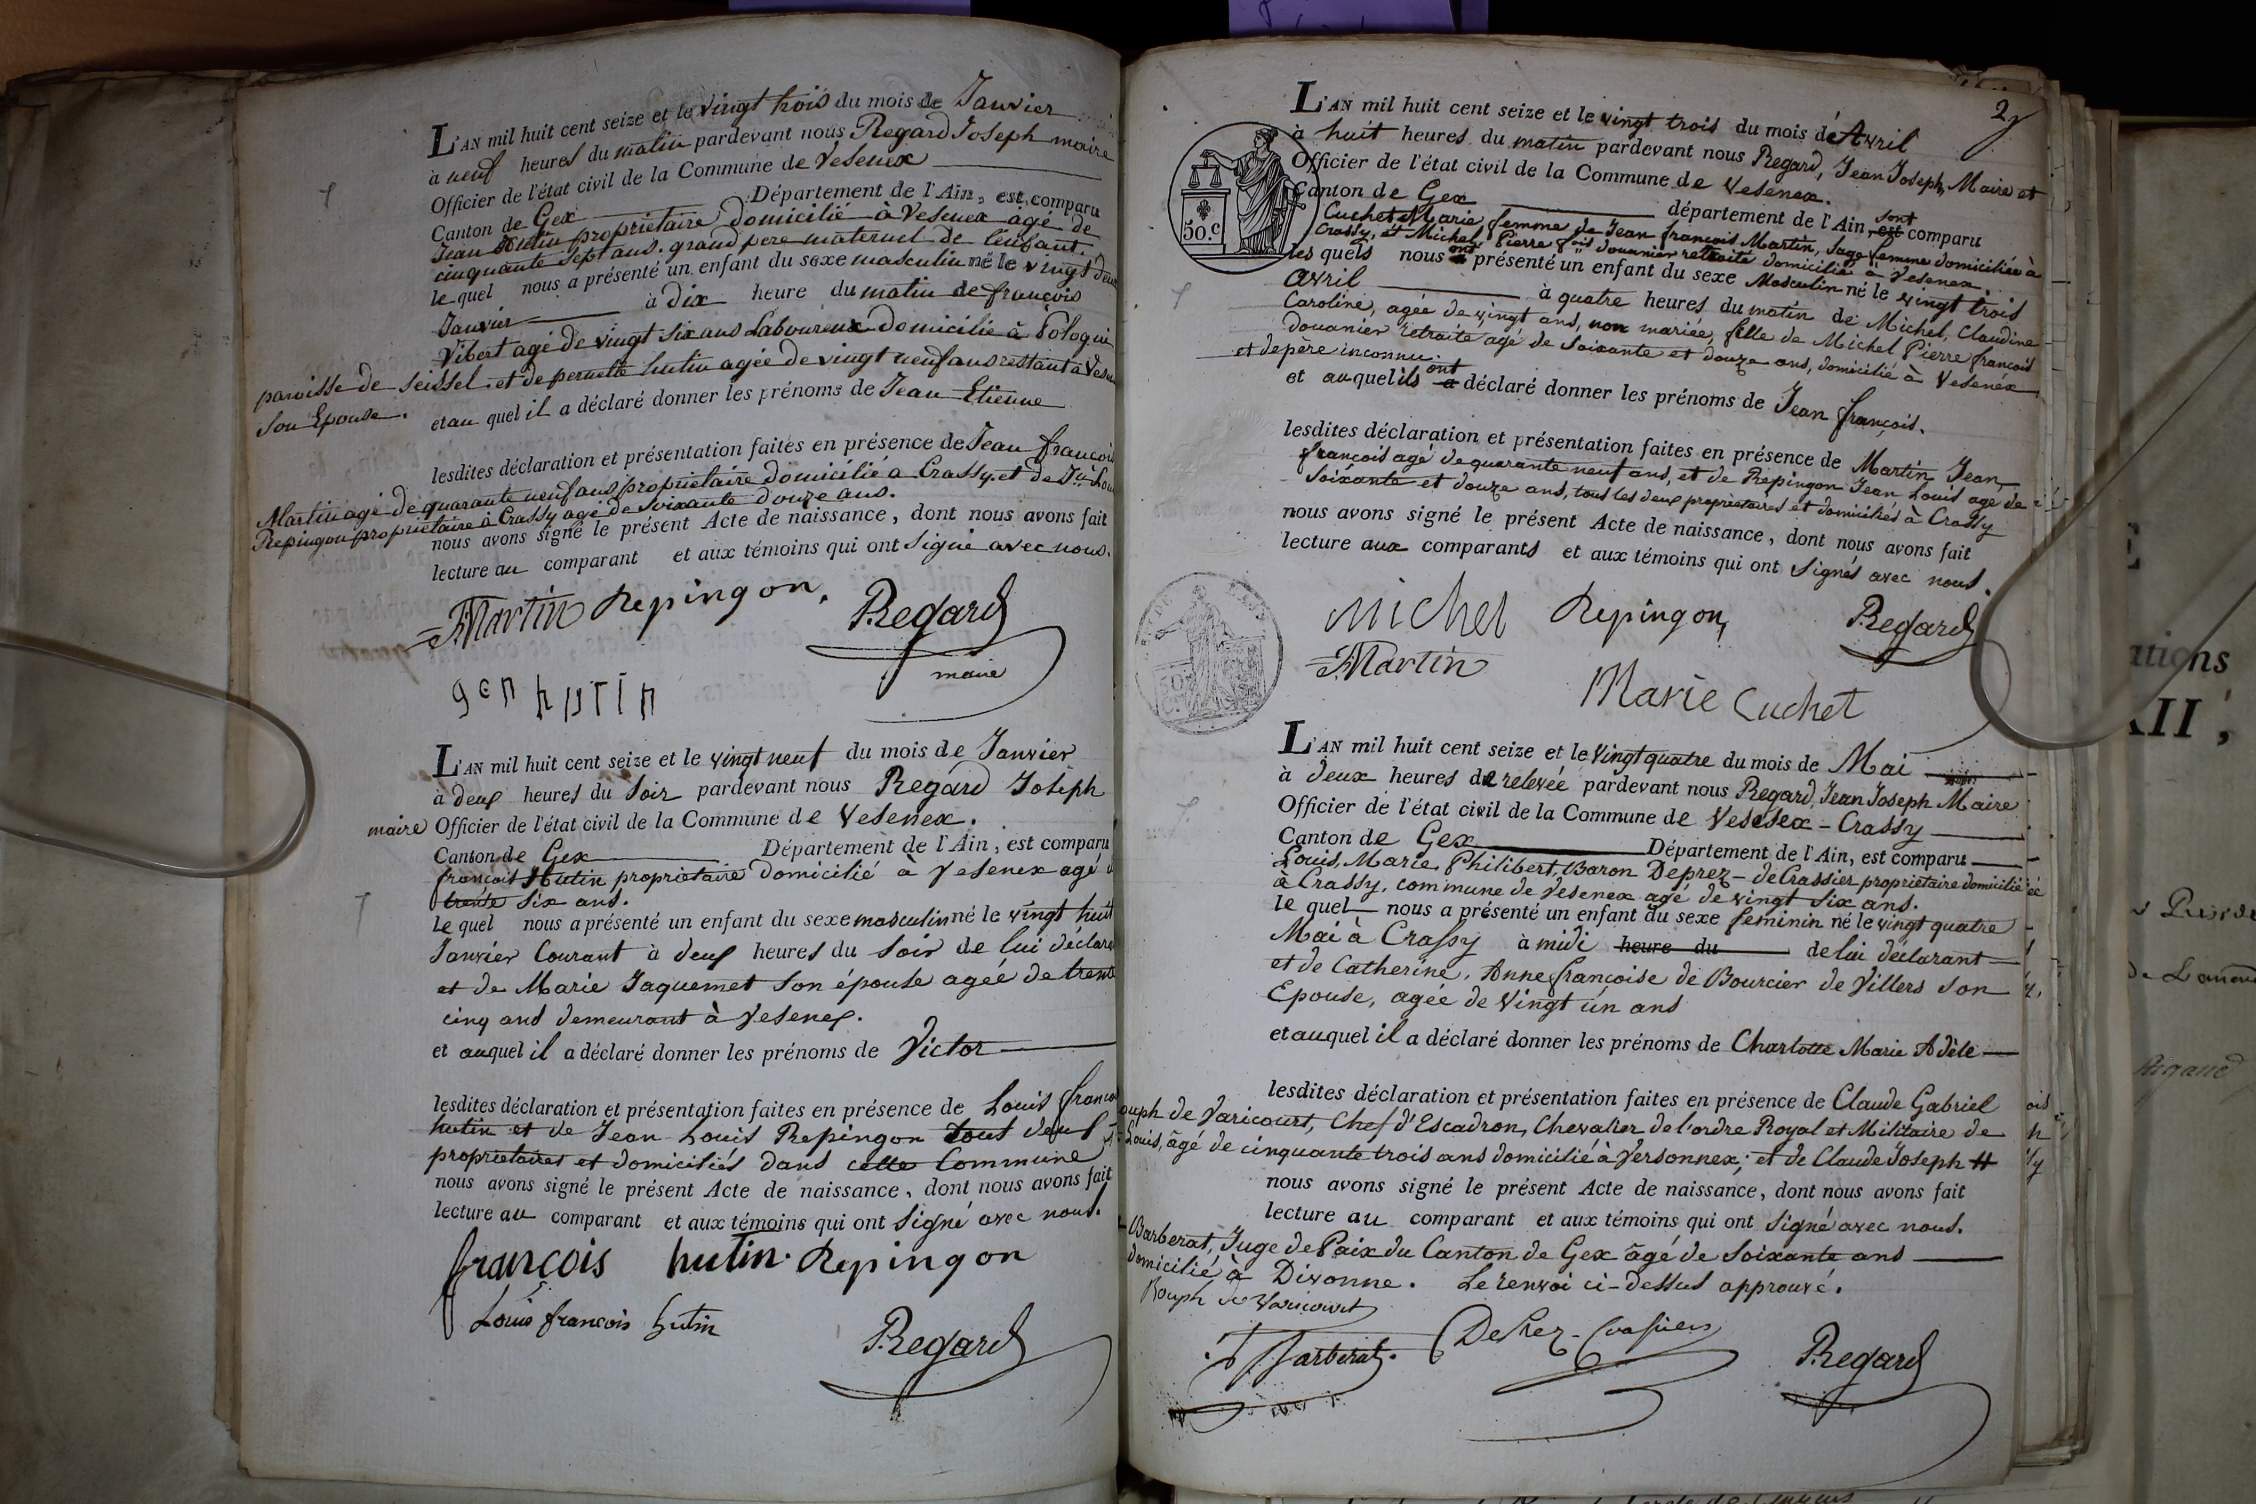 L'AN mil huit cent seize et le vingt trois du mois de Janvier
à neuf heures du matin pardevant nous Regard Joseph maire
Officier de l'état civil de la Commune de Vesenex
Canton de Gex Département de l'Ain, est comparu
Jean hutin propriétaire domicilié à Vesenex agé de
cinquante sept ans. grand pere maternel de l'enfant
lequel nous a présenté un enfant du sexe masculin né le vingt deux
Janvier à dix heure du matin de françois
Vibert agé de vingt six ans Laboureux domicilié à
paroisse de Seissel et de pernette hutin agée de vingt neuf ans restant à
son Epouse.
et au quel il a déclaré donner les prénoms de Jean Etienne
lesdites déclaration et présentation faites en présence de Jean françois
Martin agé de quarante neuf ans propriétaire domicilié à Crassy et de
Repingon propriétaire à Crassy agé de Soixante douze ans.
nous avons signé le présent Acte de naissance, dont nous avons fait
lecture au comparant et aux témoins qui ont signé avec nous.
JMartin Repingon. Regard
maire
gen hutin
L'AN mil huit cent seize et le vingt neuf du mois de Janvier
à deux heures du Soir pardevant nous Regard Joseph
maire Officier de l'état civil de la Commune de Vesenex.
Canton de Gex Département de l'Ain, est comparu
françois Hutin propriétaire domicilié à Vesenex agé
trente six ans.
le quel nous a présenté un enfant du sexe masculin né le vingt huit
Janvier Courant à deux heures du Soir de lui déclarant
et de Marie Jaquemet son épouse agée de trente
cinq ans demeurant à Vesenex.
et auquel il a déclaré donner les prénoms de Victor
lesdites déclaration et présentation faites en présence de Louis françois
hutin et de Jean Louis Repingon tous deux
propriétaires et domiciliés dans cette Commune
nous avons signé le présent Acte de naissance, dont nous avons fait
lecture au comparant et aux témoins qui ont signé avec nous.
françois hutin. Repingon
Louis françois hutin
Regard
2
L'AN mil huit cent seize et le vingt trois du mois d'Avril
à huit heures du matin pardevant nous Regard, Jean Joseph, Maire et
Officier de l'état civil de la Commune de Vesenex.
Canton de Gex département de l'Ain, est sont comparu
Cuchet Marie femme de Jean françois Martin, Sage femme domiciliée à
Crassy, et Michel Pierre fois douannier retraité domicilié à Vesenex.
les quels nous ont présenté un enfant du sexe Masculin né le vingt trois
avril à quatre heures du matin de Michel, Claudine
Caroline, agée de vingt ans, non mariée, fille de Michel Pierre françois
douanier retraité agé de Soixante et douze ans, domicilié à Vesenex
et de père inconnu.
et auquel ils ont a déclaré donner les prénoms de Jean françois.
lesdites déclaration et présentation faites en présence de Martin Jean
françois agé de quarante neuf ans, et de Repingon Jean Louis agé de
Soixante et douze ans, tous les deux propriétaires et domiciliés à Crassy
nous avons signé le présent Acte de naissance, dont nous avons fait
lecture aux comparants et aux témoins qui ont signés avec nous.
50.c
Michel Repingon, Regard
JMartin
Marie Cuchet
L'AN mil huit cent seize et le Vingt quatre du mois de Mai
à deux heures de relevée pardevant nous Regard, Jean Joseph Maire
Officier de l'état civil de la Commune de Vesesex - Crassy
Canton de Gex Département de l'Ain, est comparu
Louis, Marie, Philibert, Baron Deprez - de Crassier propriétaire domicilié
à Crassy, commune de Vesenex agé de vingt six ans.
le quel nous a présenté un enfant du sexe féminin né le vingt quatre
Mai à Crassy à midi heure du de lui déclarant
et de Catherine, Anne françoise de Bourcier de Villers son
Epouse, agée de Vingt un ans
et auquel il a déclaré donner les prénoms de Charlotte Marie Adèle
lesdites déclaration et présentation faites en présence de Claude Gabriel
Rouph de Varicourt, Chef d'Escadron, Chevalier de l'ordre Royal et Militaire de
St Louis, âgé de cinquante trois ans domicilié à Versonnex; et de Claude Joseph #
nous avons signé le présent Acte de naissance, dont nous avons fait
lecture au comparant et aux témoins qui ont signé avec nous.
# Barberat, Juge de Paix du Canton de Gex âgé de Soixante ans
domicilié à Divonne. Le renvoi ci-dessus approuvé.
Rouph de Varicourt
Barberat. DePrez-Crassier Regard
ations
XII,